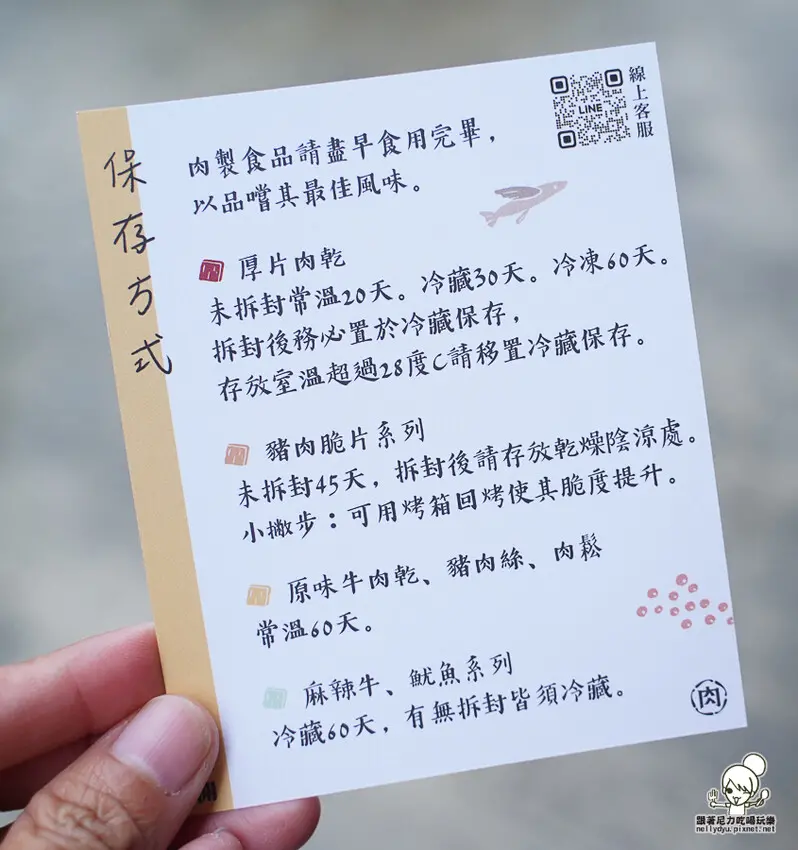 保存方式
線上客服
LINE
肉製食品請盡早食用完畢，
以品嚐其最佳風味。
厚片肉乾
未拆封常溫20天。冷藏30天。冷凍60天。
拆封後務必置於冷藏保存，
存放室溫超過28度C請移置冷藏保存。
豬肉脆片系列
未拆封45天，拆封後請存放乾燥陰涼處。
小撇步：可用烤箱回烤使其脆度提升。
原味牛肉乾、豬肉絲、肉鬆
常溫60天。
麻辣牛、魷魚系列
冷藏60天，有無拆封皆須冷藏。
肉
跟著尼力吃喝玩樂
nellydyu.pixnet.net